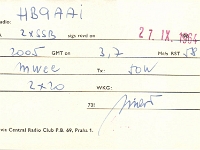 HB9AAi
adio:
2xSSB sigs rcvd on 27.IX.1984
2005 GMT on 3,7 Hats RST 58
mwee Tx: 50W
2x20 WKG:
73!
vis Central Radio Club P.B. 69, Praha 1.